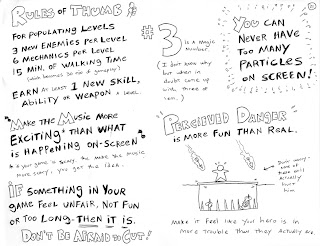 RULES OF THUMB
FOR POPULATING LEVELS
3 NEW ENEMIES PER LEVEL
6 MECHANICS PER LEVEL
15 MIN. OF WALKING TIME
(WHICH BECOMES 30 MIN OF GAMEPLAY)
EARN AT LEAST 1 NEW SKILL,
ABILITY OR WEAPON A LEVEL
"MAKE THE MUSIC MORE
EXCITING* THAN WHAT
IS HAPPENING ON-SCREEN"
* if your game is scary, then make the music
more scary, you get the idea.
IF SOMETHING IN YOUR
GAME FEEL UNFAIR, NOT FUN
OR TOO LONG, THEN IT IS.
DON'T BE AFRAID TO CUT!
#3
is a magic number
I don't know why
but when in
doubt come up
with three of
them.
YOU CAN
NEVER HAVE
TOO MANY
PARTICLES
ON SCREEN!
"PERCEIVED DANGER"
IS MORE FUN THAN REAL.
Don't worry,
none of
these will
actually
hurt
him
Make it feel like your hero is in
more trouble than they actually are.